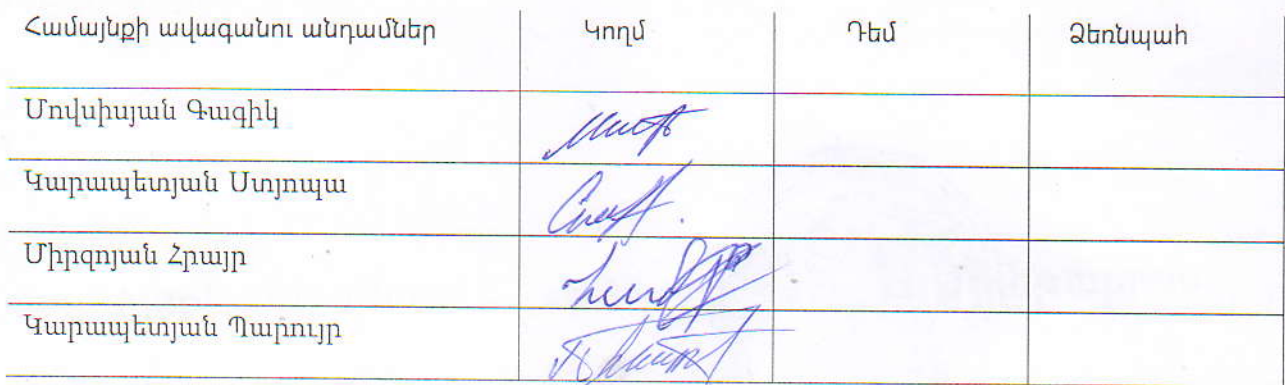 Համայնքի ավագանու անդամներ Կողմ Դեմ Ձեռնպահ
Մովսիսյան Գագիկ
Կարապետյան Ստյոպա
Միրզոյան Հրայր
Կարապետյան Պարույր